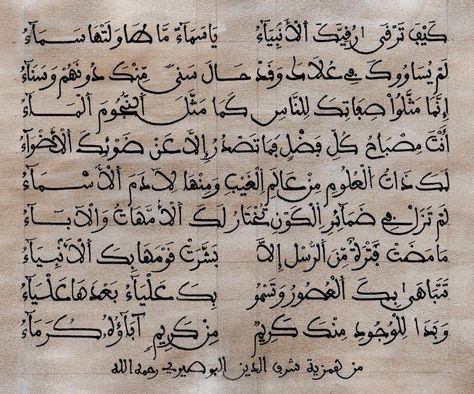 كَيْفَ تَرْقَى رُقِيَّكَ الْأَنْبِيَاءُ يَا سَمَاءً مَّا طَاوَلَتْهَا سَمَاءُ
لَمْ يُسَاوُوكَ فِي عُلَاكَ وَقَدْ حَالَ سَنًى مِّنكَ دُونَهُمْ وَسَنَاءُ
إِنَّمَا مَثَّلُوا صِفَاتِكَ لِلنَّاسِ كَمَا مَثَّلَ النُّجُومَ الْمَاءُ
أَنْتَ مِصْبَاحُ كُلِّ فَضْلٍ فَمَا تَصْدُرُ إِلَّا عَنْ ضَوْئِكَ الْأَضْوَاءُ
لَكَ ذَاتُ الْعُلُومِ مِنْ عَالِمِ الْغَيْبِ وَمِنْهَا لِآدَمَ الْأَسْمَاءُ
لَمْ تَزَلْ فِي ضَمَائِرِ الْكَوْنِ تُخْتَارُ لَكَ الْأُمَّهَاتُ وَالْآبَاءُ
مَا مَضَتْ فَتْرَةٌ مِنَ الرُّسْلِ إِلَّا بَشَّرَتْ قَوْمَهَا بِكَ الْأَنْبِيَاءُ
تَتَبَاهَى بِكَ الْعُصُورُ وَتَسْمُو بِكَ عَلْيَاءُ بَعْدَهَا عَلْيَاءُ
وَبَدَا لِلْوُجُودِ مِنْكَ كَرِيمٌ مِنْ كَرِيمٍ آبَاؤُهُ كُرَمَاءُ
من همزية شرف الدين البوصيري رحمه الله